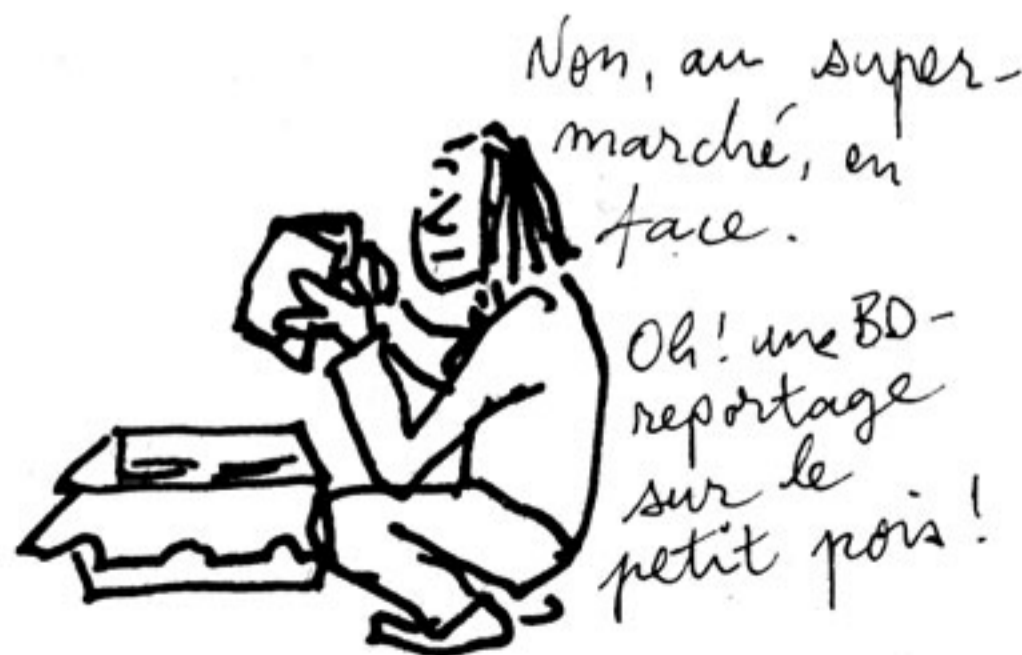 Non, au super-
marché, en
face.
Oh! une BD-
reportage
sur le
petit pois!